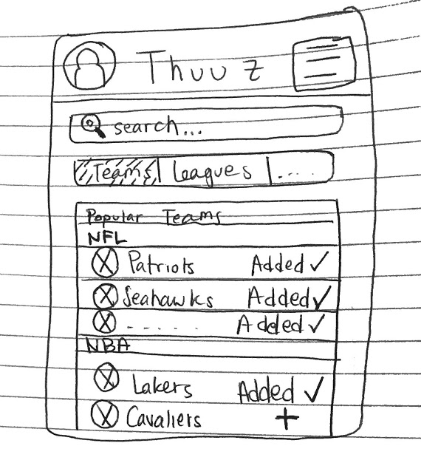 Thuuz
search...
Teams Leagues .....
Popular Teams
NFL
Patriots Added ✓
Seahawks Added ✓
...... Added ✓
NBA
Lakers Added ✓
Cavaliers +